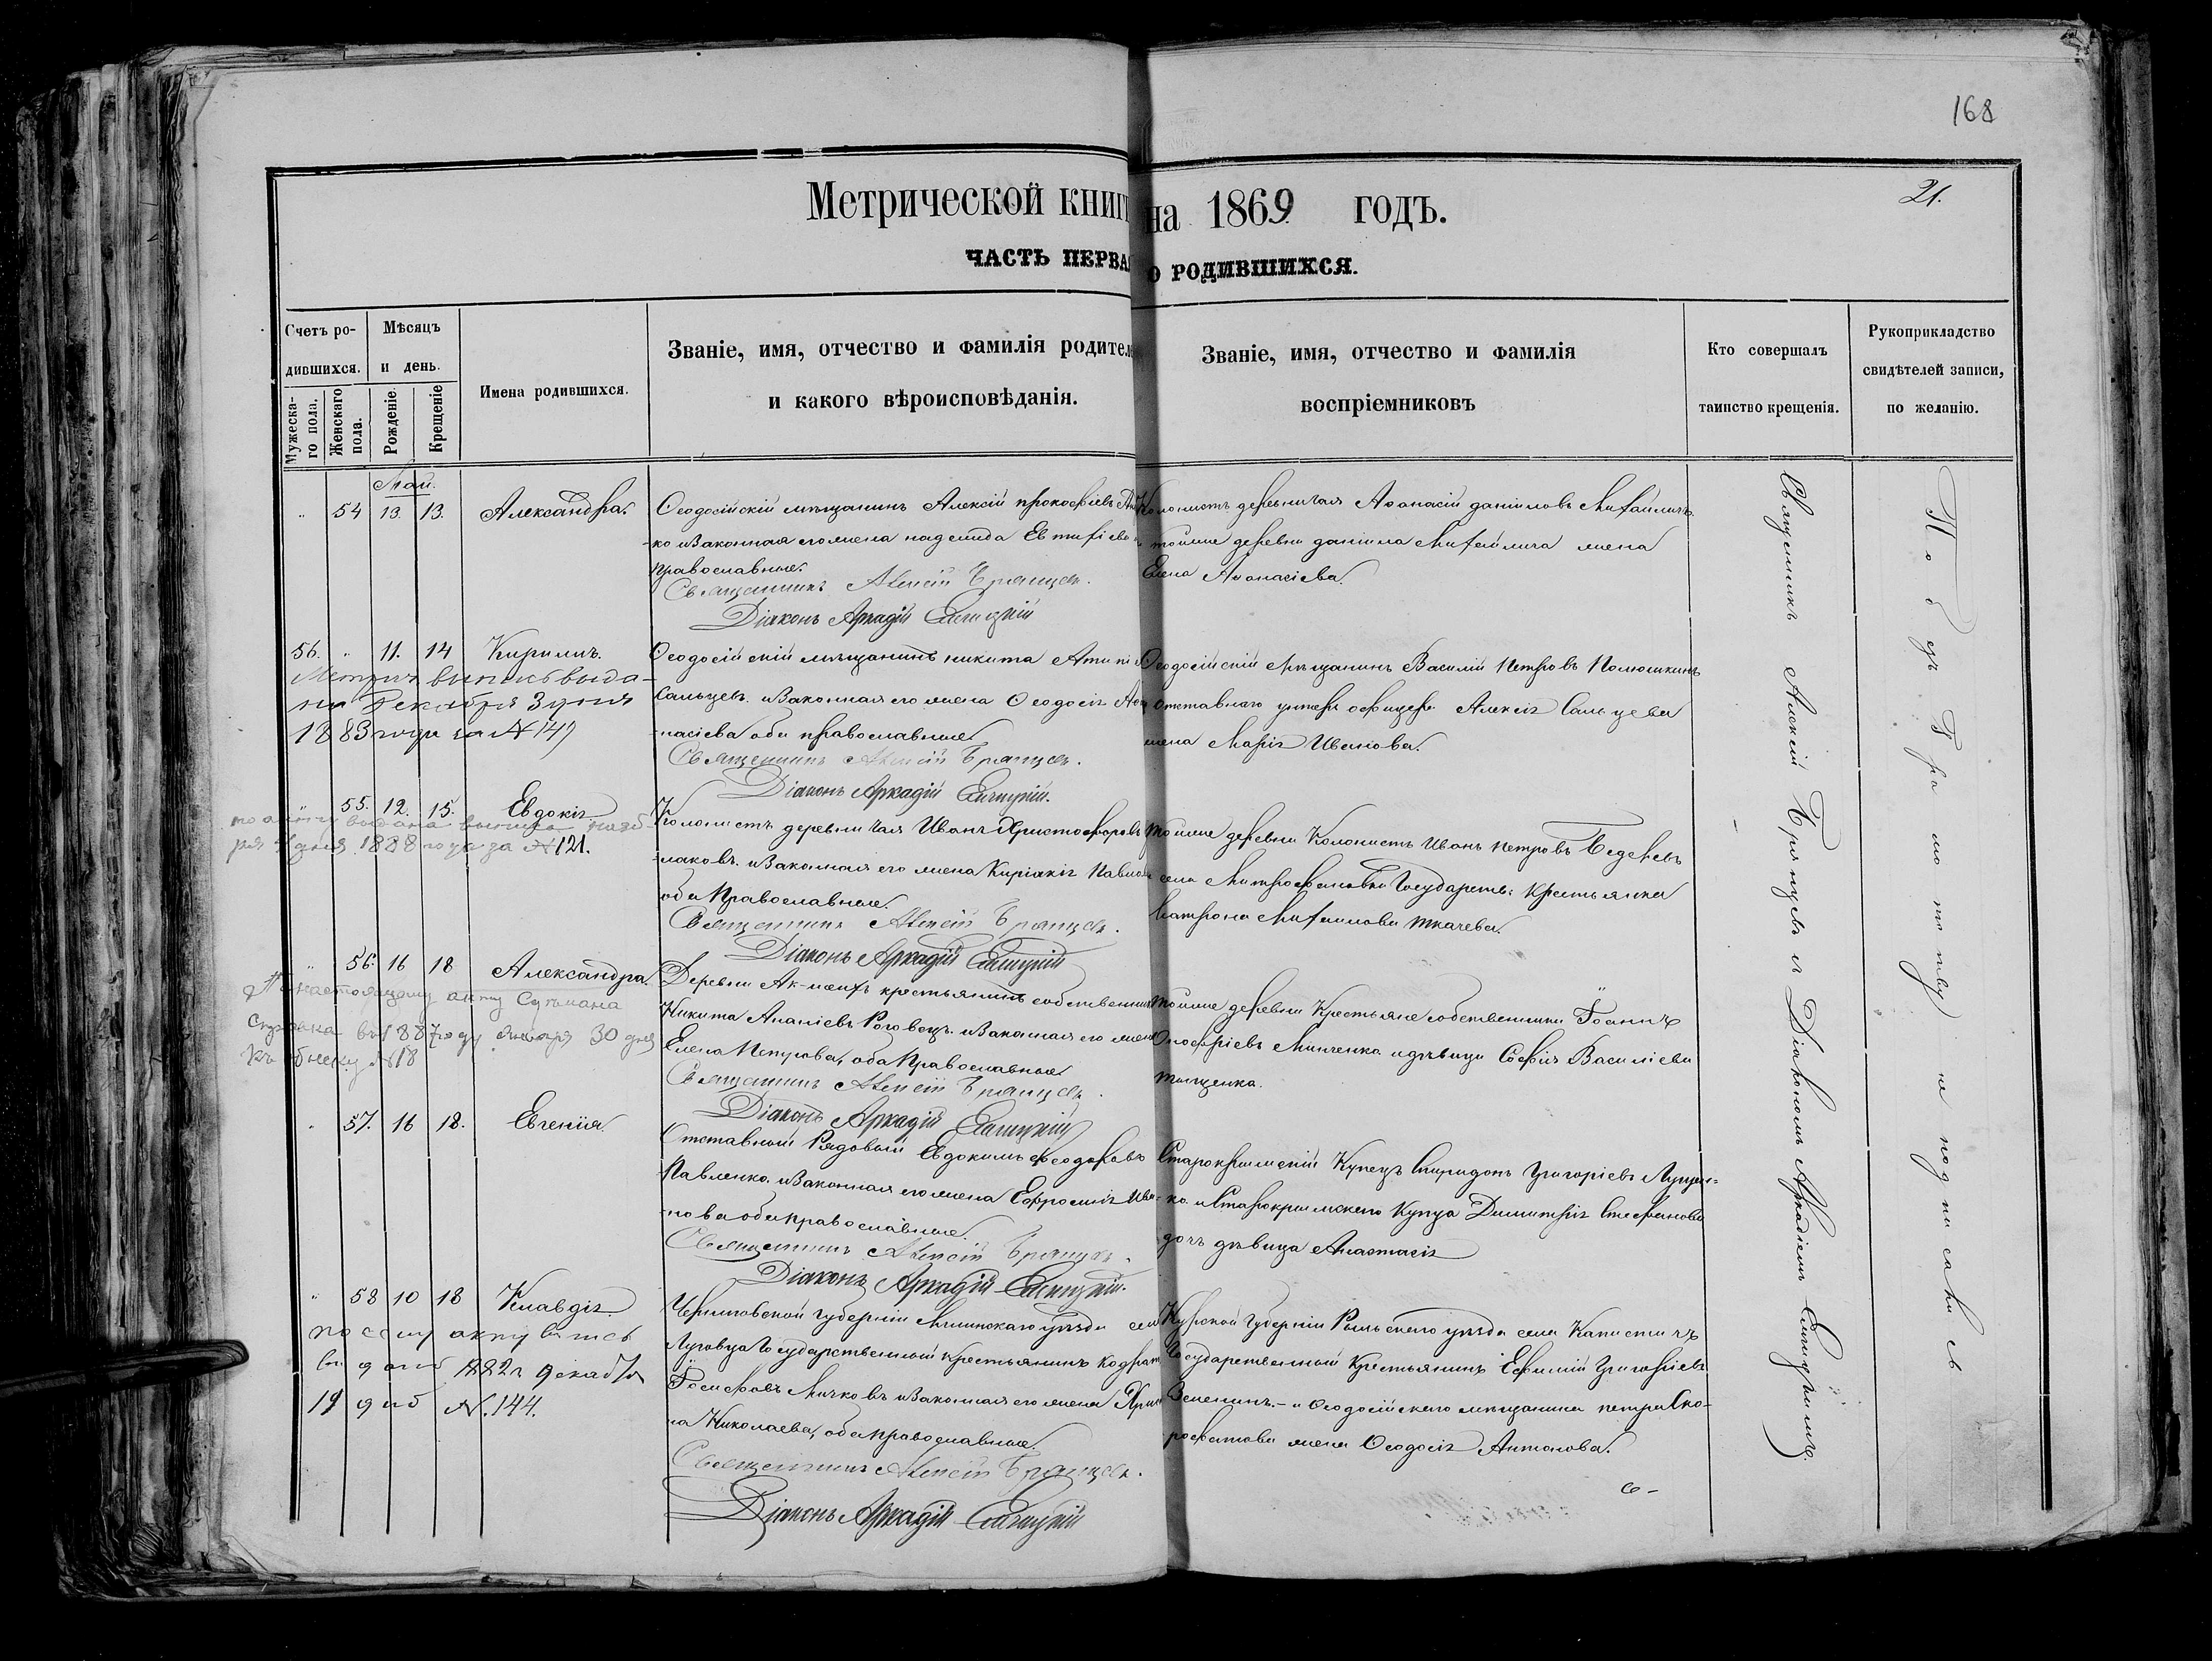 168
21.
Метрической книги на 1869 годъ.
ЧАСТЬ ПЕРВАЯ О РОДИВШИХСЯ.
Счетъ ро-
дившихся.
Мужеска-
го пола.
Женскаго
пола.
Мѣсяцъ
и день.
Рожденіе.
Крещеніе
Имена родившихся.
Званіе, имя, отчество и фамилія родител
и какого вѣроисповѣданія.
Званіе, имя, отчество и фамилія
воспріемниковъ
Кто совершалъ
таинство крещенія.
Рукоприкладство
свидѣтелей записи,
по желанію.
Май.
54 13. 13. Александра.
Ѳеодосійскій мѣщанинъ Алексій Прокофіевъ
-ко и Законная его жена Надежда Евтифіева
православные.
Священникъ Алексій Брянцев.
Діаконъ Аркадій
Колонистъ деревни Чая Аѳанасій Даніиловъ Михайличъ
тойже деревни Даніила Михайлича жена
Елена Аѳанасіева.
56. 11. 14 Кириллъ.
Метрич. выпись выда-
на Декабря 3 дня
1883 года за № 147
Ѳеодосійскій мѣщанинъ Никита
Сальцевъ и Законная его жена Ѳеодосія Аѳа
-насіева оба православные.
Священникъ Алексій Брянцев.
Діаконъ Аркадій
Ѳеодосійскій мѣщанинъ Василій Петровъ Полюшкинъ
отставного унтеръ офицера Алексія Сальцева
жена Марія Иванова.
55. 12. 15. Евдокія
выдана выпись
дня 1888 года за № 121.
Колонистъ деревни Чая Иванъ Христофоровъ
-лаковъ и Законная его жена Киріакія Павлова
оба Православные.
Священникъ Алексій Брянцев.
Діаконъ Аркадій
тойже деревни Колонистъ Иванъ Петровъ
села Митрофановки Государств. Крестьянка
Матрона Михаилова Ткачева.
56. 16 18 Александра.
По настоящему акту
Справка въ 1887 году Января 30 дня
№ 18
Деревни Ак-мечеть крестьянинъ собственникъ
Никита Ананіевъ Роговецъ и Законная его жена
Елена Петрова, оба Православные.
Священникъ Алексій Брянцев.
Діаконъ Аркадій
тойже деревни Крестьяне собственники Іоаннъ
Онофріевъ Минченко и дѣвица Софія Василіева
Тищенко.
57. 16 18. Евгенія
Отставной Рядовой Евдокимъ Ѳеодоровъ
Павленко и Законная его жена Ефросинія Ива-
-нова оба православные.
Священникъ Алексій Брянцев.
Діаконъ Аркадій
Старокрымскій Купецъ Спиридонъ Григоріевъ Луцен-
ко и Старокрымскаго Купца Димитрія Стефанова
дочь дѣвица Анастасія
58 10 18 Клавдія
по сему акту выпись
выдана 1882 г декабря
19 дня №. 144.
Черниговской Губерніи Мглинскаго уѣзда села
Луговца Государственный крестьянинъ Кодратъ
Іосифовъ Мачковъ и Законная его жена
на Николаева, оба православные.
Священникъ Алексій Брянцев.
Діаконъ Аркадій
Курской Губерніи Рыльскаго уѣзда села Капыстичъ
Государственный Крестьянинъ Ефимій Григоріевъ
Зеленинъ. - и Ѳеодосійскаго мѣщанина Петра Ско-
рофатова жена Ѳеодосія Антонова.
Священникъ Алексій Брянцевъ съ Діакономъ Аркадіемъ
По безграмотству не подписались